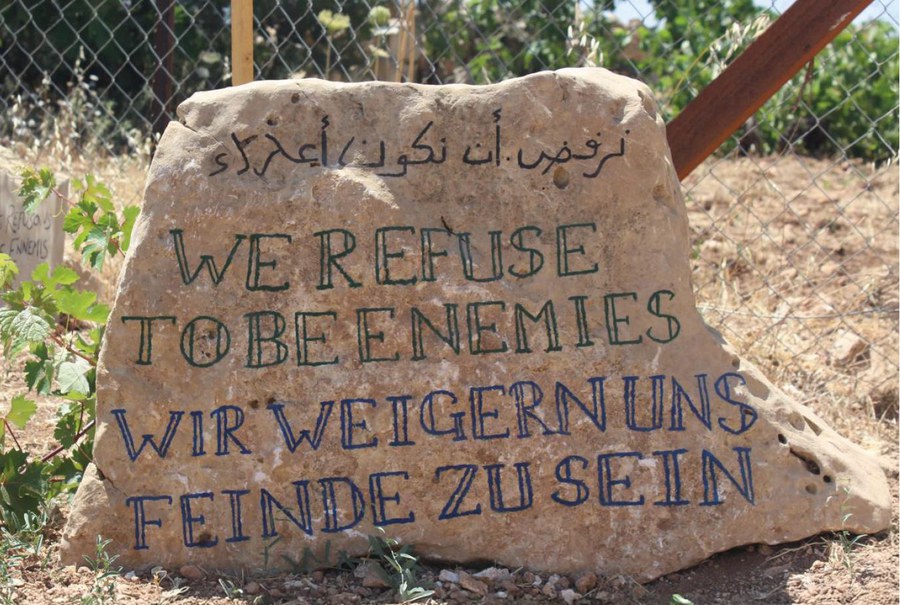 نرفض أن نكون أعداء
WE REFUSE
TO BE ENEMIES
WIR WEIGERN UNS
FEINDE ZU SEIN
ENNEMIS